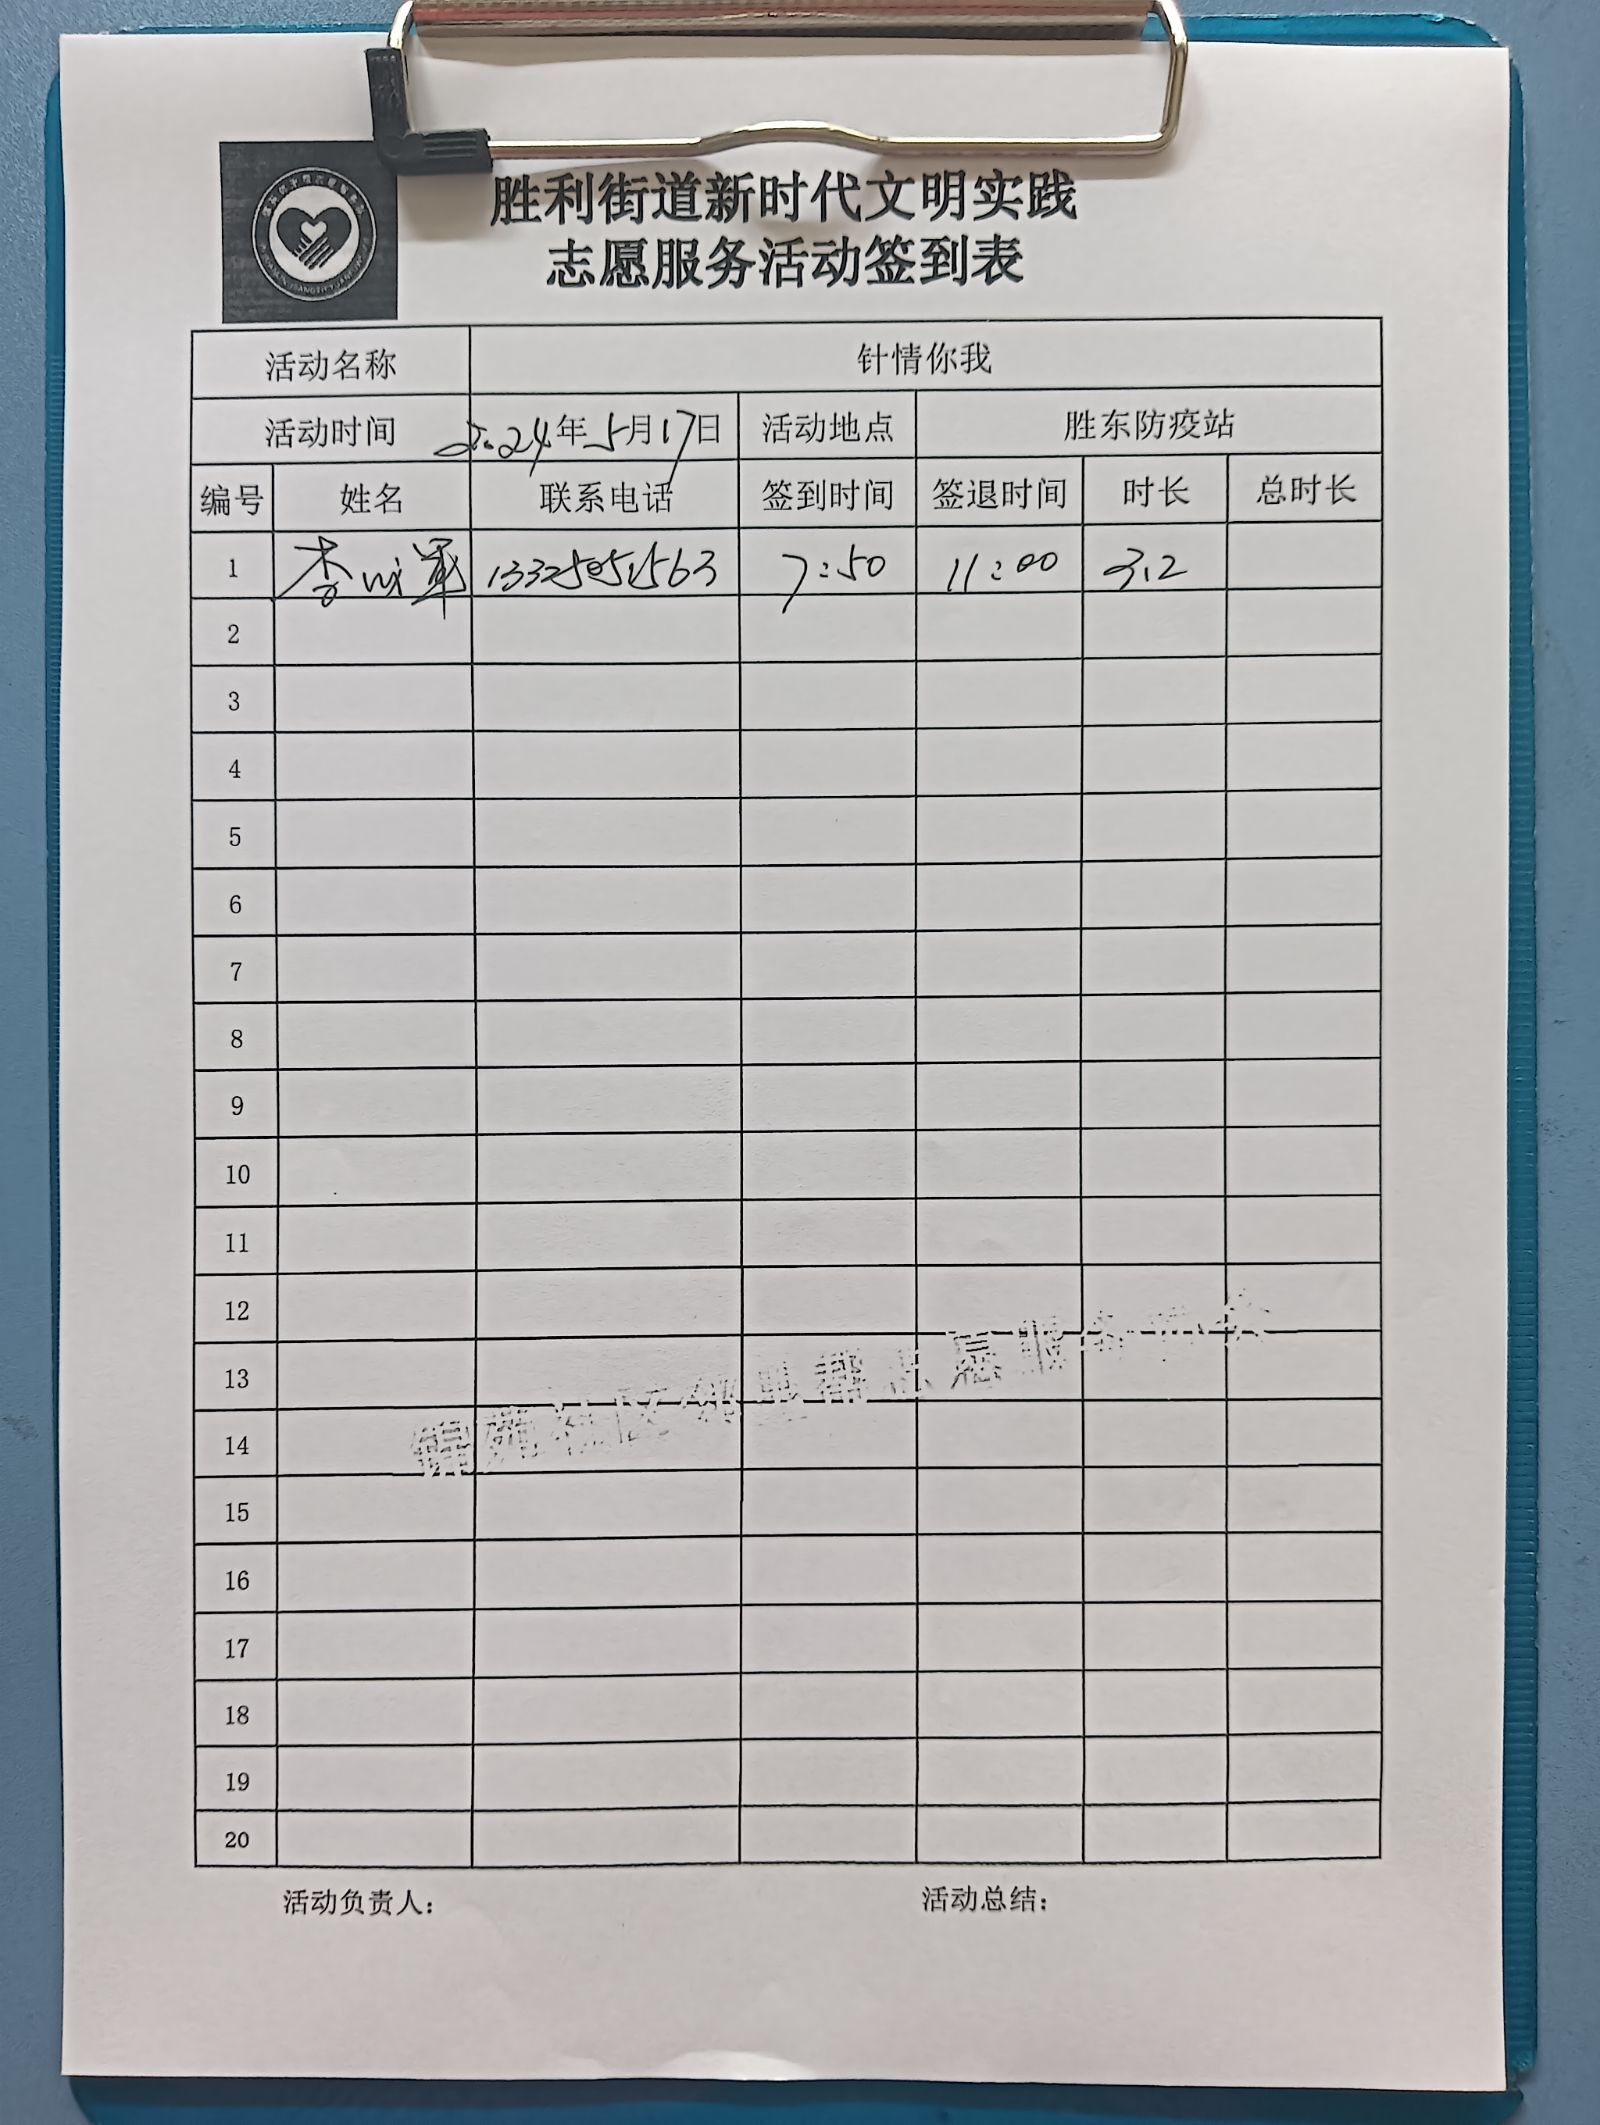 胜利街道新时代文明实践
志愿服务活动签到表
活动名称 针情你我
活动时间 2024年5月17日 活动地点 胜东防疫站
编号 姓名 联系电话 签到时间 签退时间 时长 总时长
1 李 军 7:50 11:00 3.2
2
3
4
5
6
7
8
9
10
11
12
13
14
15
16
17
18
19
20
活动负责人： 活动总结：